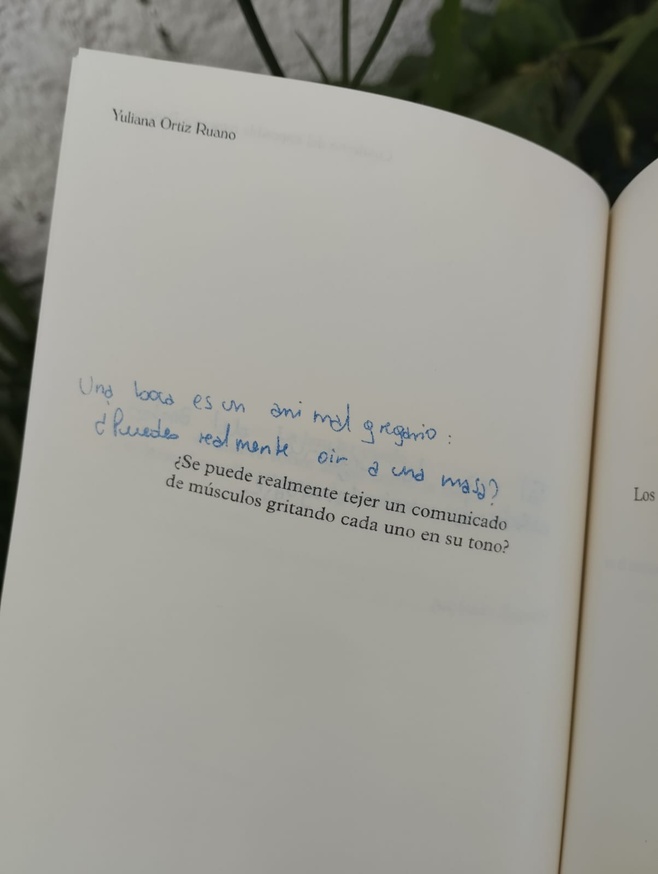 Yuliana Ortiz Ruano
Una boca es un animal gregario:
¿Puedes realmente oir a una masa?
¿Se puede realmente tejer un comunicado
de músculos gritando cada uno en su tono?
Los